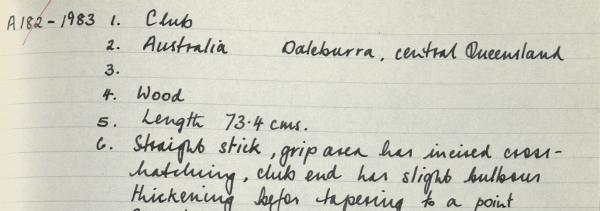 A182-1983 1. Club
2. Australia Daleburra, central Queensland
3.
4. Wood
5. Length 73.4 cms.
6. Straight stick, grip area has incised cross-
hatching, club end has slight bulbous
thickening befor tapering to a point